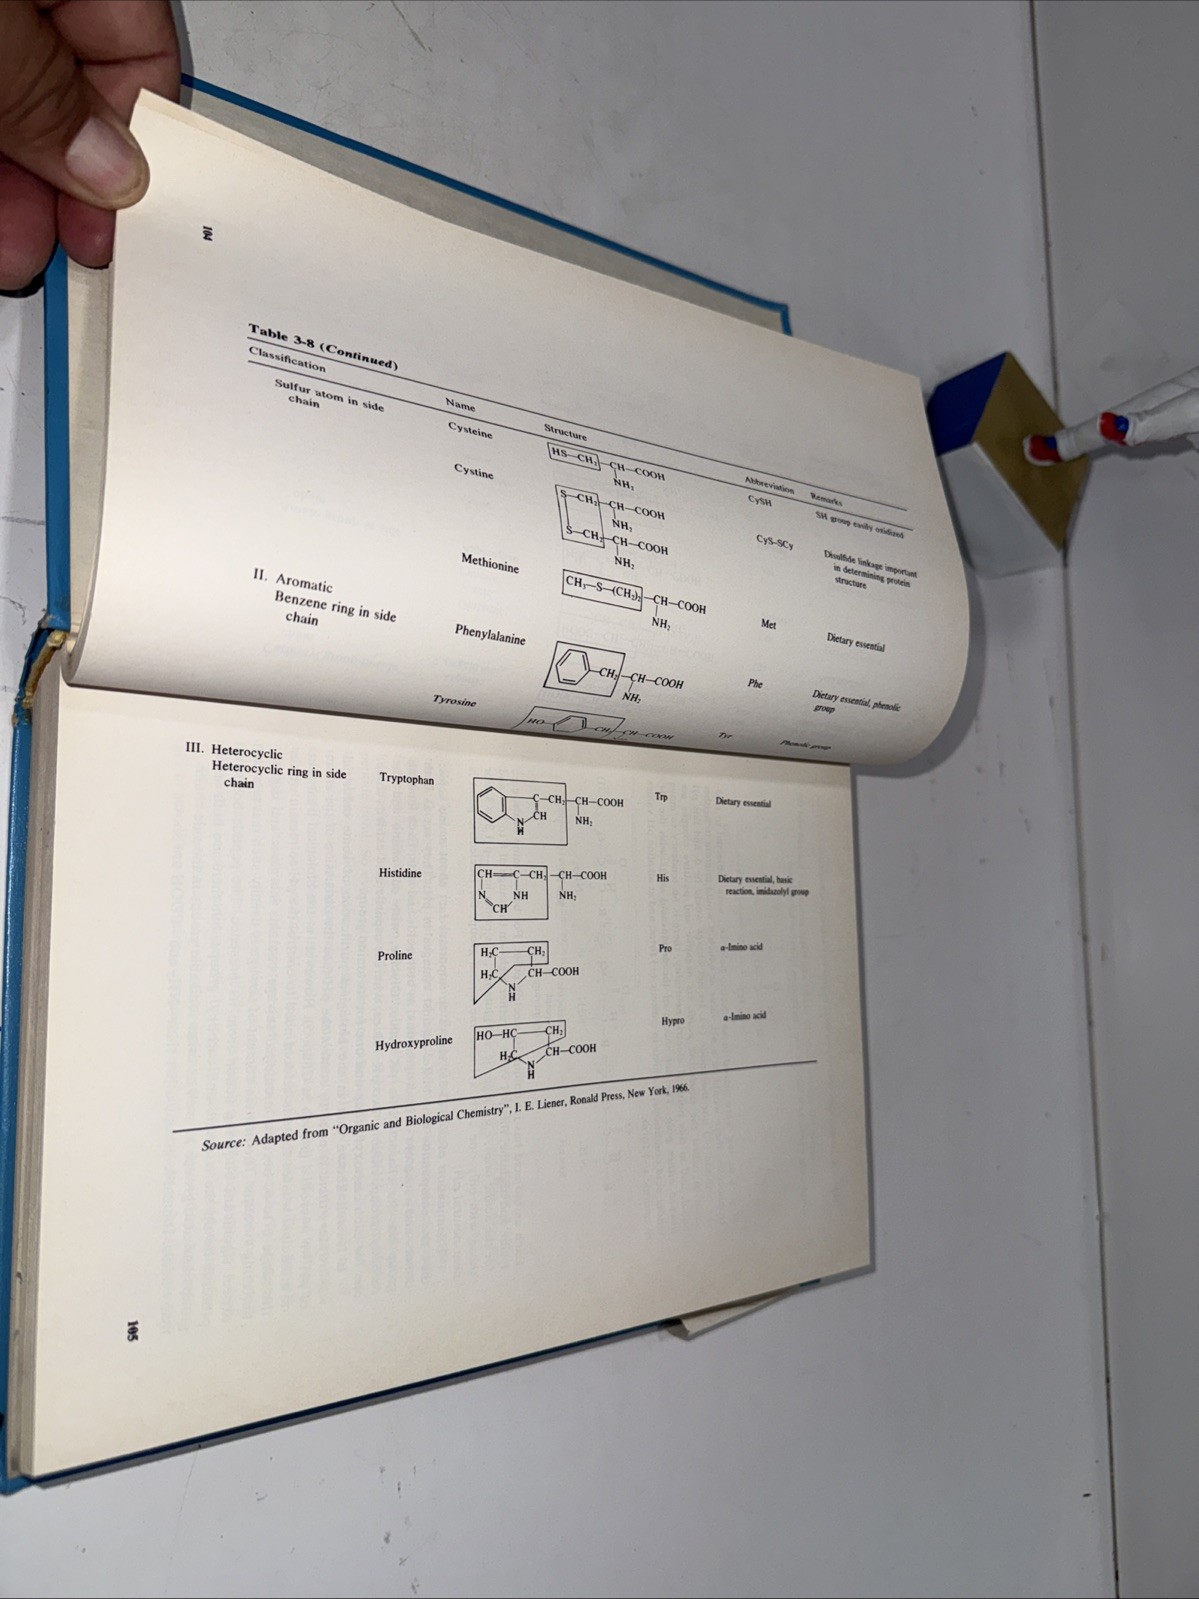 104
Table 3-8 (Continued)
Classification Name Structure Abbreviation Remarks
Sulfur atom in side
chain
Cysteine HS—CH₂—CH—COOH CySH SH group easily oxidized
NH₂
Cystine S—CH₂—CH—COOH CyS-SCy Disulfide linkage important
in determining protein
structure
NH₂
S—CH₂—CH—COOH
NH₂
Methionine CH₃—S—(CH₂)₂—CH—COOH Met Dietary essential
NH₂
II. Aromatic
Benzene ring in side
chain
Phenylalanine —CH₂—CH—COOH Phe Dietary essential, phenolic
group
NH₂
Tyrosine HO— —CH₂—CH—COOH Tyr Phenolic group
III. Heterocyclic
Heterocyclic ring in side
chain
Tryptophan C—CH₂—CH—COOH Trp Dietary essential
CH NH₂
N
H
Histidine CH=C—CH₂—CH—COOH His Dietary essential, basic
reaction, imidazolyl group
N NH NH₂
CH
Proline H₂C—CH₂ Pro α-Imino acid
H₂C CH—COOH
N
H
Hydroxyproline HO—HC—CH₂ Hypro α-Imino acid
H₂C CH—COOH
N
H
Source: Adapted from "Organic and Biological Chemistry", I. E. Liener, Ronald Press, New York, 1966.
105